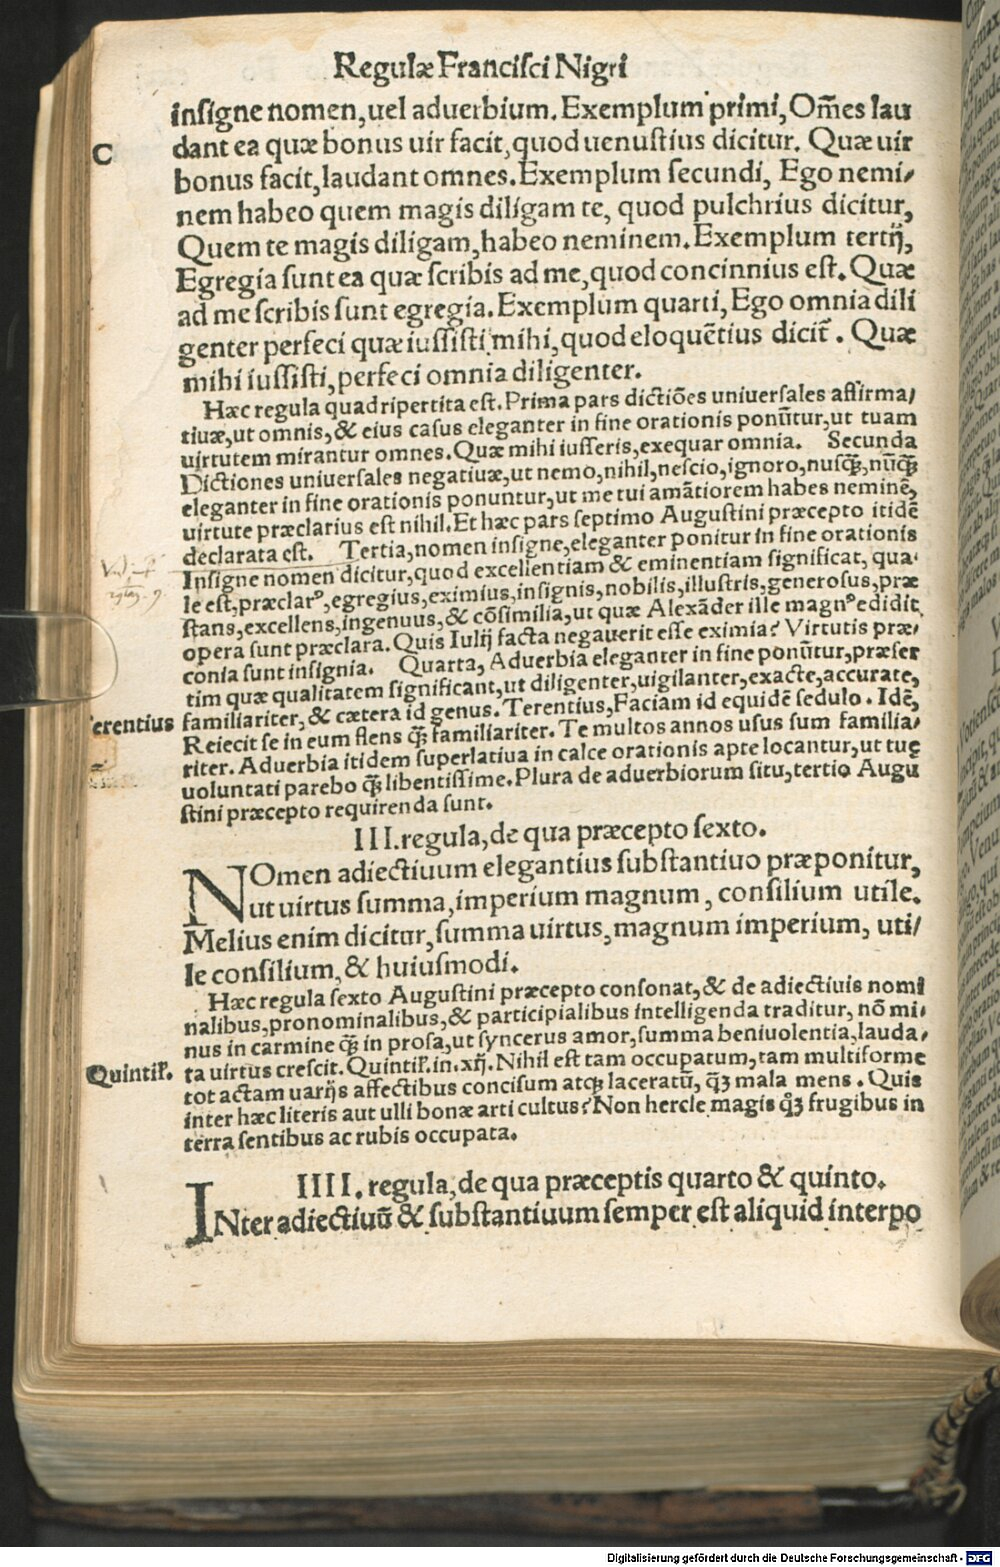 Regulæ Francisci Nigri
insigne nomen,uel aduerbium. Exemplum primi, Om̃es lau
C
dant ea quæ bonus uir facit,quod uenustius dicitur. Quæ uir
bonus facit,laudant omnes. Exemplum secundi, Ego nemi/
nem habeo quem magis diligam te, quod pulchrius dicitur,
Quem te magis diligam,habeo neminem. Exemplum tertij,
Egregia sunt ea quæ scribis ad me,quod concinnius est. Quæ
ad me scribis sunt egregia. Exemplum quarti, Ego omnia dili
genter perfeci quæ iussisti mihi,quod eloquẽtius dicit̃. Quæ
mihi iussisti,perfeci omnia diligenter.
Hæc regula quadripertita est. Prima pars dictiões uniuersales affirma/
tiuæ,ut omnis,& eius casus eleganter in fine orationis ponũtur,ut tuam
uirtutem mirantur omnes. Quæ mihi iusseris,exequar omnia. Secunda
Dictiones uniuersales negatiuæ,ut nemo,nihil,nescio,ignoro,nusq̃,nũq̃
eleganter in fine orationis ponuntur,ut me tui amãtiorem habes neminẽ,
uirtute præclarius est nihil. Et hæc pars septimo Augustini præcepto itidẽ
declarata est. Tertia,nomen insigne,eleganter ponitur in fine orationis
Insigne nomen dicitur,quod excellentiam & eminentiam significat, qua-
le est,præclarꝰ,egregius,eximius,insignis,nobilis,illustris,generosus,præ
stans,excellens,ingenuus,& cõsimilia,ut quæ Alexãder ille magnꝰ edidit
opera sunt præclara. Quis Iulij facta negauerit esse eximia? Virtutis præ/
conia sunt insignia. Quarta, Aduerbia eleganter in fine ponũtur,præser
tim quæ qualitatem significant,ut diligenter,uigilanter,exacte,accurate,
erentius
familiariter, & cætera id genus. Terentius, Faciam id equidẽ sedulo. Idẽ,
Reiecit se in eum flens q̃ familiariter. Te multos annos usus sum familia/
riter. Aduerbia itidem superlatiua in calce orationis apte locantur,ut tuę
uoluntati parebo q̃ libentissime. Plura de aduerbiorum situ,tertio Augu
stini præcepto requirenda sunt.
III.regula,de qua præcepto sexto.
NOmen adiectiuum elegantius substantiuo præponitur,
ut uirtus summa,imperium magnum, consilium utile.
Melius enim dicitur,summa uirtus,magnum imperium, uti/
le consilium,& huiusmodi.
Hæc regula sexto Augustini præcepto consonat,& de adiectiuis nomi
nalibus,pronominalibus,& participialibus intelligenda traditur, nõ mi/
nus in carmine q̃ in prosa,ut syncerus amor,summa beniuolentia,lauda/
Quintil̃.
ta uirtus crescit. Quintil̃.in.xij. Nihil est tam occupatum,tam multiforme
tot actam uarijs affectibus concisum atqꝫ laceratũ, q̃ꝫ mala mens. Quis
inter hæc literis aut ulli bonæ arti cultus? Non hercle magis q̃ꝫ frugibus in
terra sentibus ac rubis occupata.
IIII. regula,de qua præceptis quarto & quinto.
INter adiectiuũ & substantiuum semper est aliquid interpo
Digitalisierung gefördert durch die Deutsche Forschungsgemeinschaft - DFG